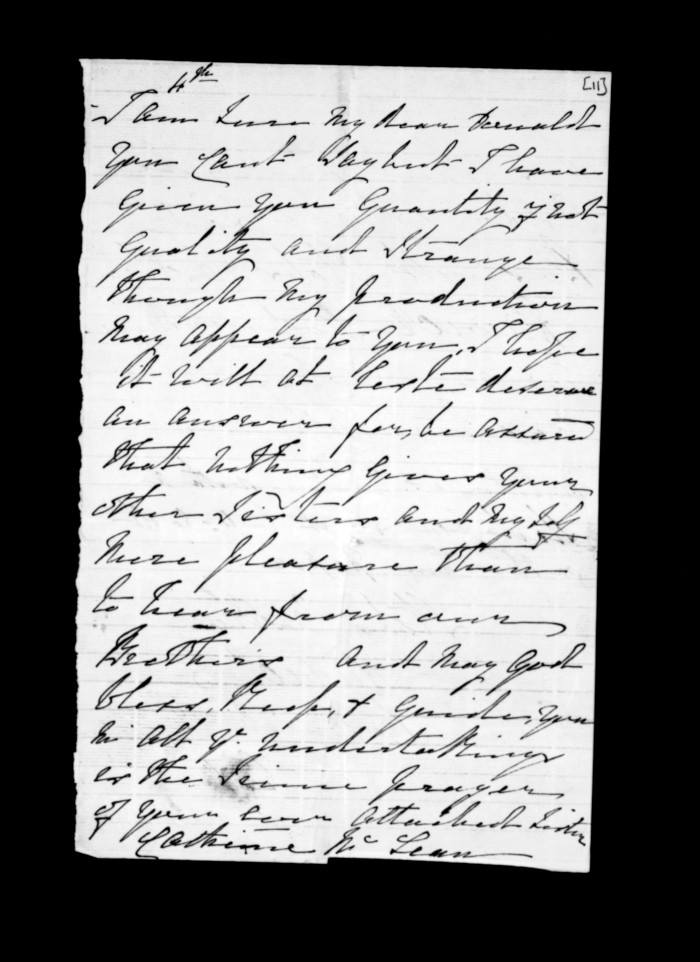 4th
[11]
I am sure my dear Donald
you cant say but I have
given you quantity if not
quality and strange
though my production
may appear to you, I hope
it will at leste deserve
an answer for, be assured
that nothing gives your
other sisters and myself
more pleasure than
to hear from our
Brothers and may God
bless, Keep, & guide, you
in all yr. undertakings
is the prayer
of your ever attached sister
Catherine Mc Lean